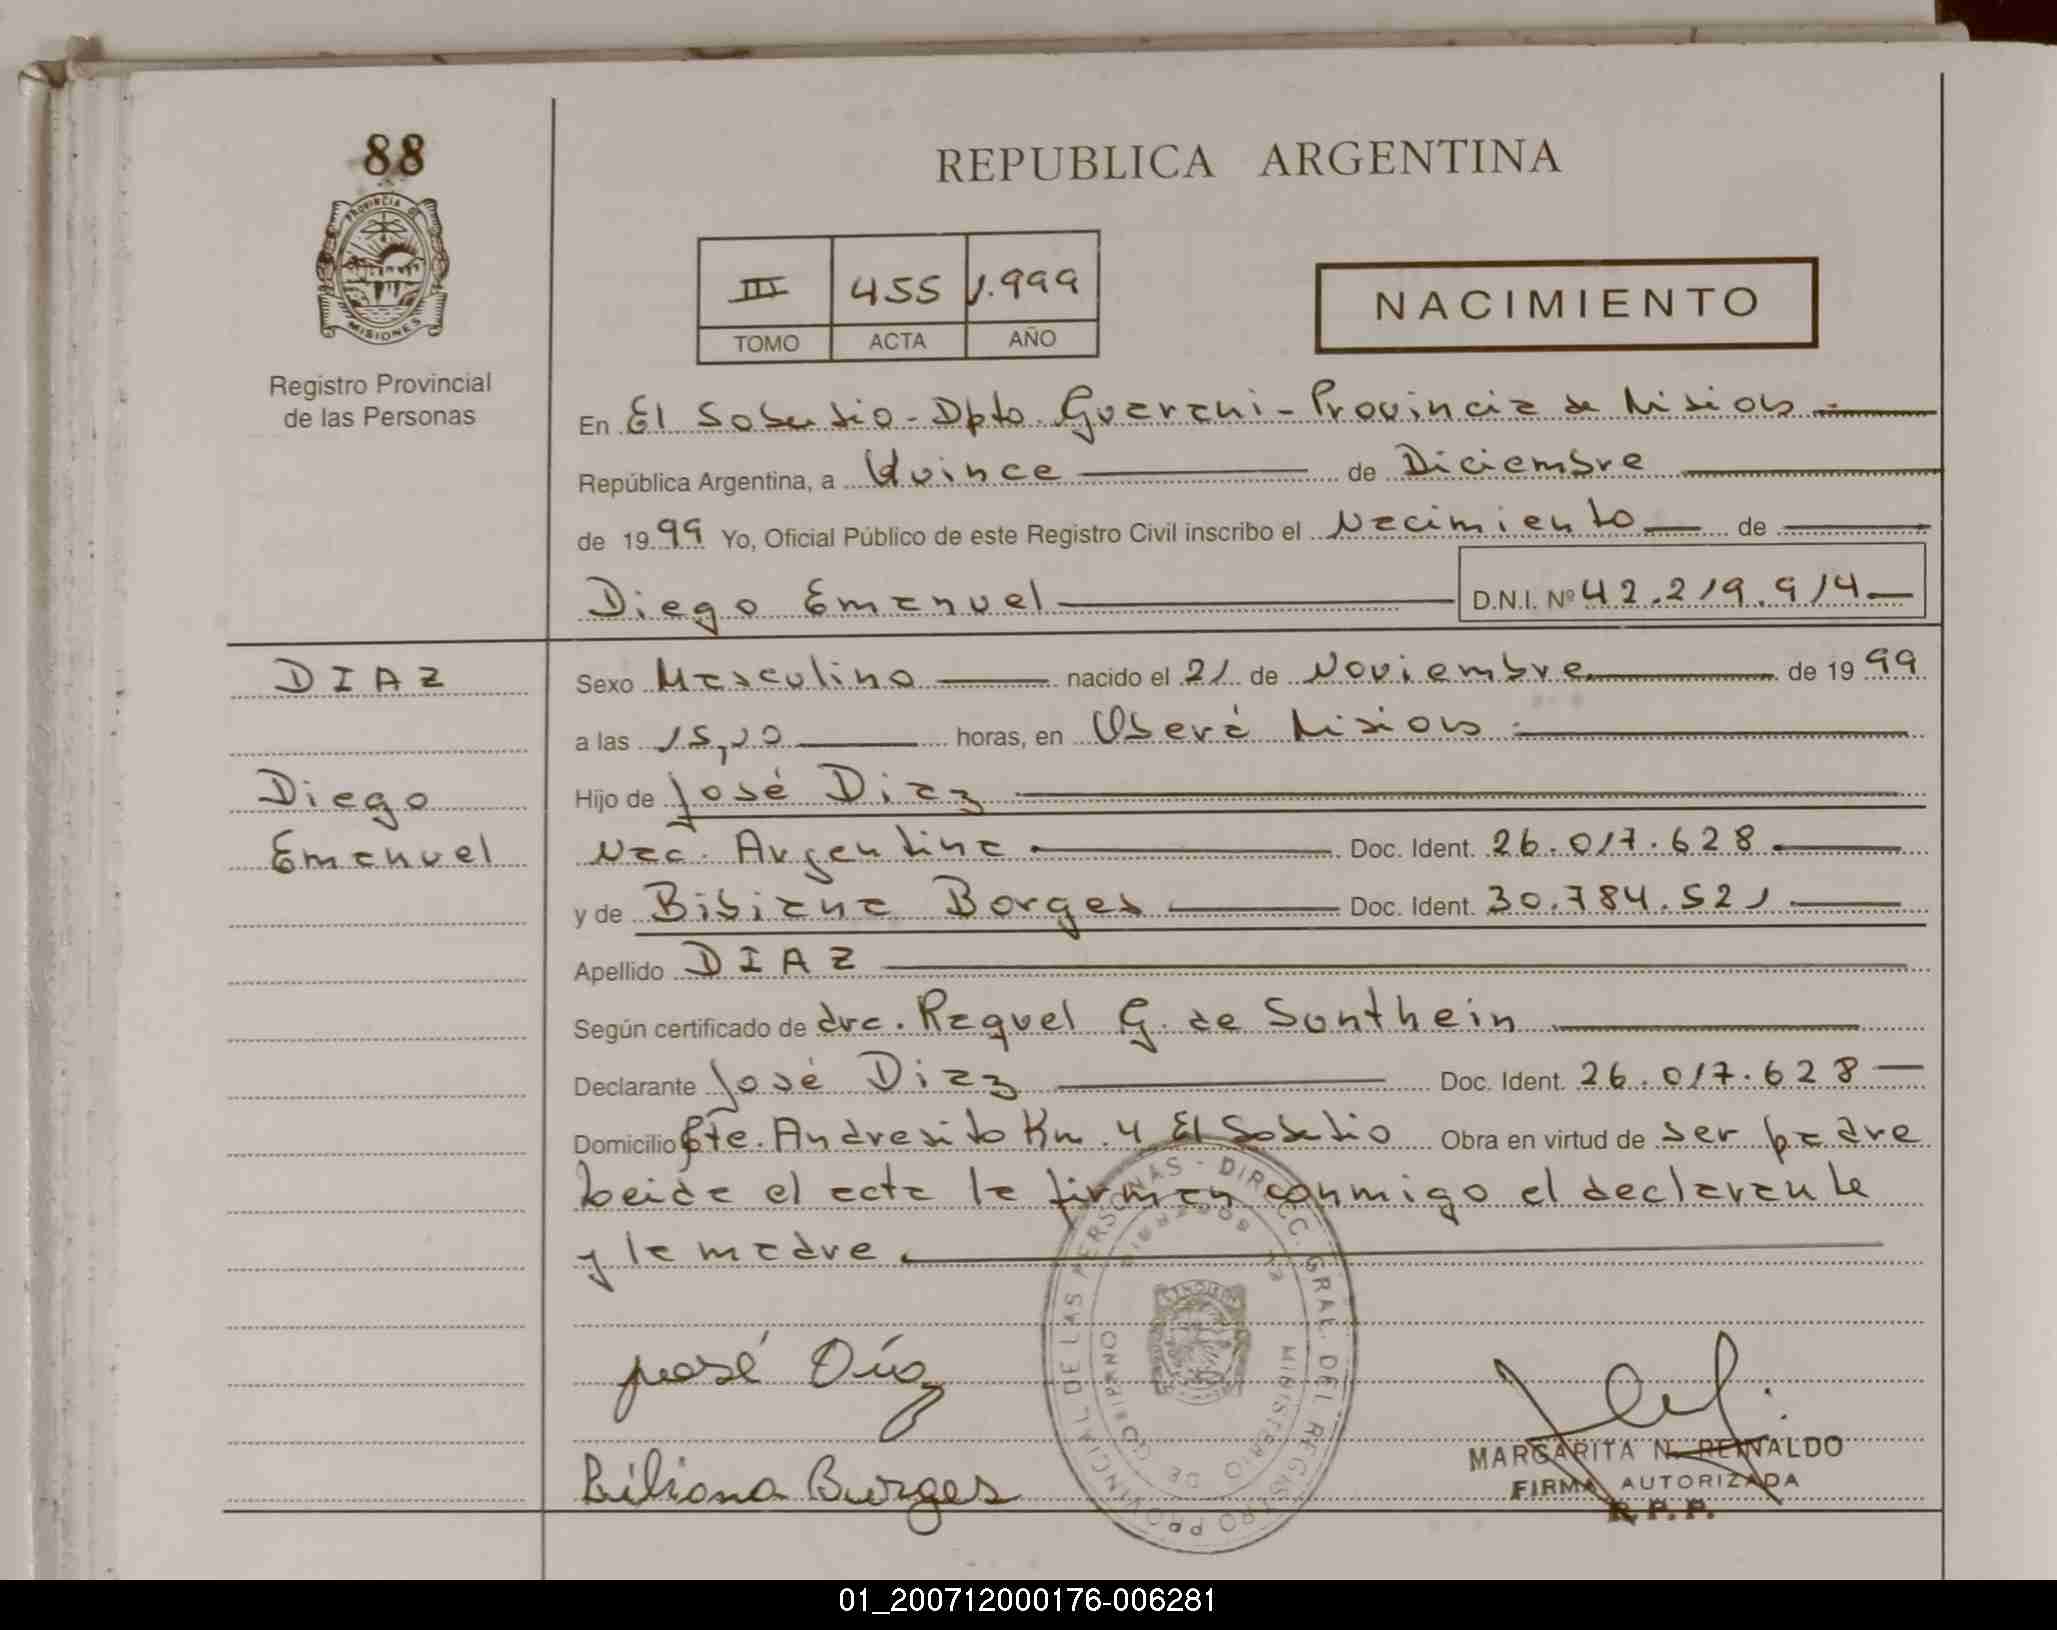 88
PROVINCIA DE
MISIONES
Registro Provincial
de las Personas
REPUBLICA ARGENTINA
III 455 1.999
TOMO ACTA AÑO
NACIMIENTO
En El Soberbio - Dpto. Guarani - Provincia de Misiones
República Argentina, a Quince de Diciembre
de 1999 Yo, Oficial Público de este Registro Civil inscribo el Nacimiento de
Diego Emanuel D.N.I. Nº 42.219.914
DIAZ
Sexo Masculino nacido el 21 de Noviembre de 1999
a las horas, en Oberá Misiones
Diego
Hijo de José Diaz
Emanuel
Nac. Argentina Doc. Ident. 26.017.628
y de Bibiana Borges Doc. Ident. 30.784.521
Apellido DIAZ
Según certificado de dra. Raquel G. de Sonthein
Declarante José Diaz Doc. Ident. 26.017.628
Domicilio Pte. Andresito Km. 4 El Soberbio Obra en virtud de ser padre
Leida el acta la firman conmigo el declarante
y la madre.
José Díaz
Biliana Burges
REGISTRO PROVINCIAL DE LAS PERSONAS - DIRECC. GRAL. DEL
MINISTERIO DE GOBIERNO
MARGARITA N. REINALDO
FIRMA AUTORIZADA
R.P.P.
01_200712000176-006281